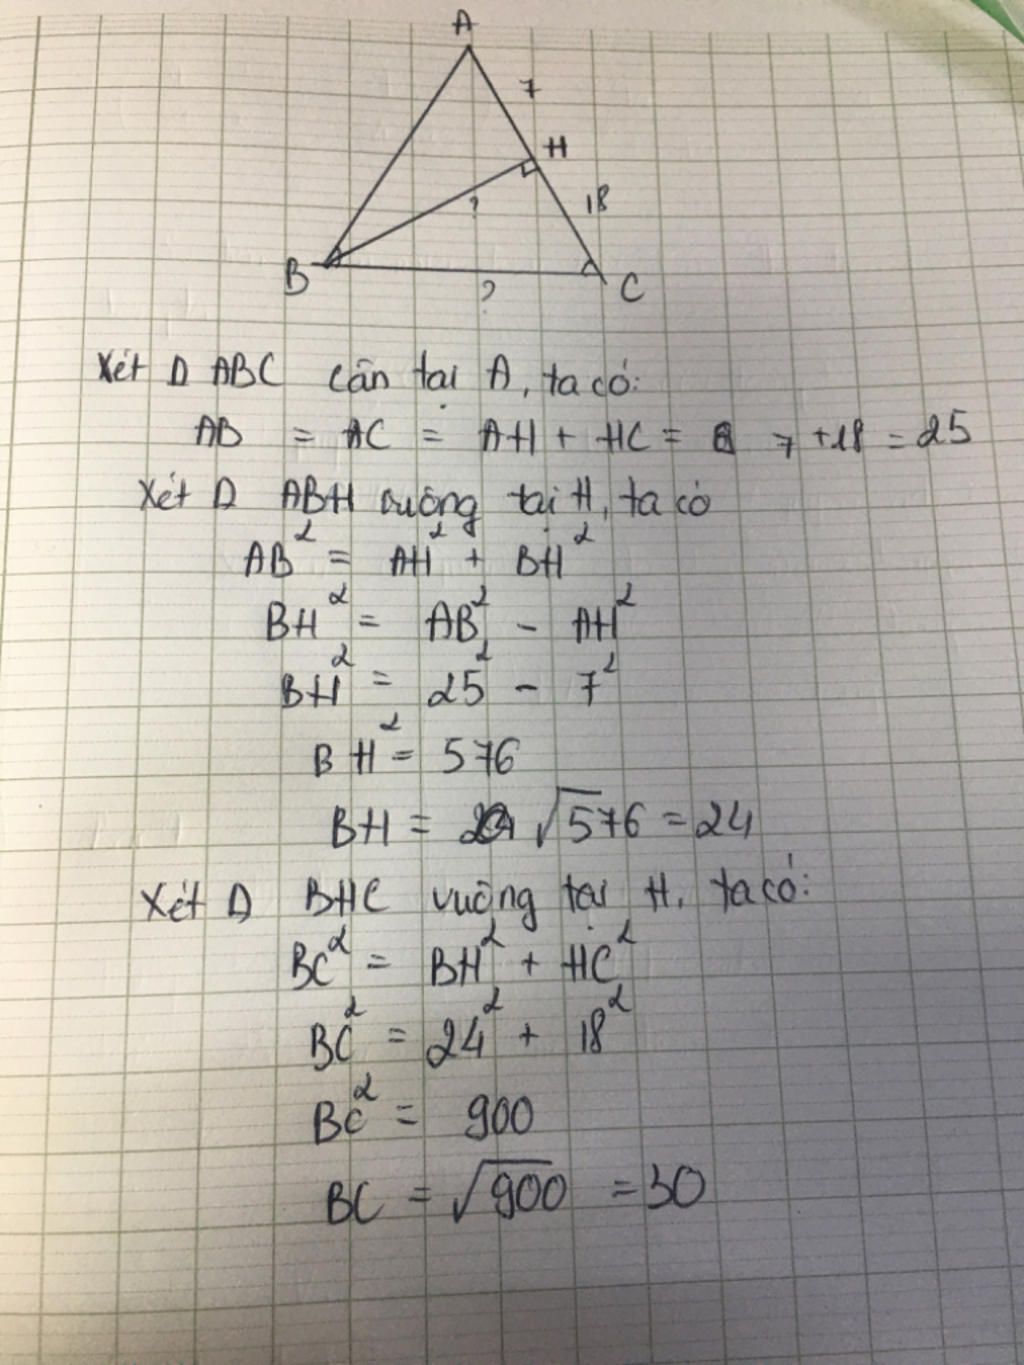 A
7
H
?
18
B
?
C
Xét Δ ABC cân tại A, ta có:
AB = AC = AH + HC = 7 + 18 = 25
Xét Δ ABH vuông tại H, ta có
AB² = AH² + BH²
BH² = AB² - AH²
BH² = 25² - 7²
BH² = 576
BH = √576 = 24
Xét Δ BHC vuông tại H, ta có:
BC² = BH² + HC²
BC² = 24² + 18²
BC² = 900
BC = √900 = 30